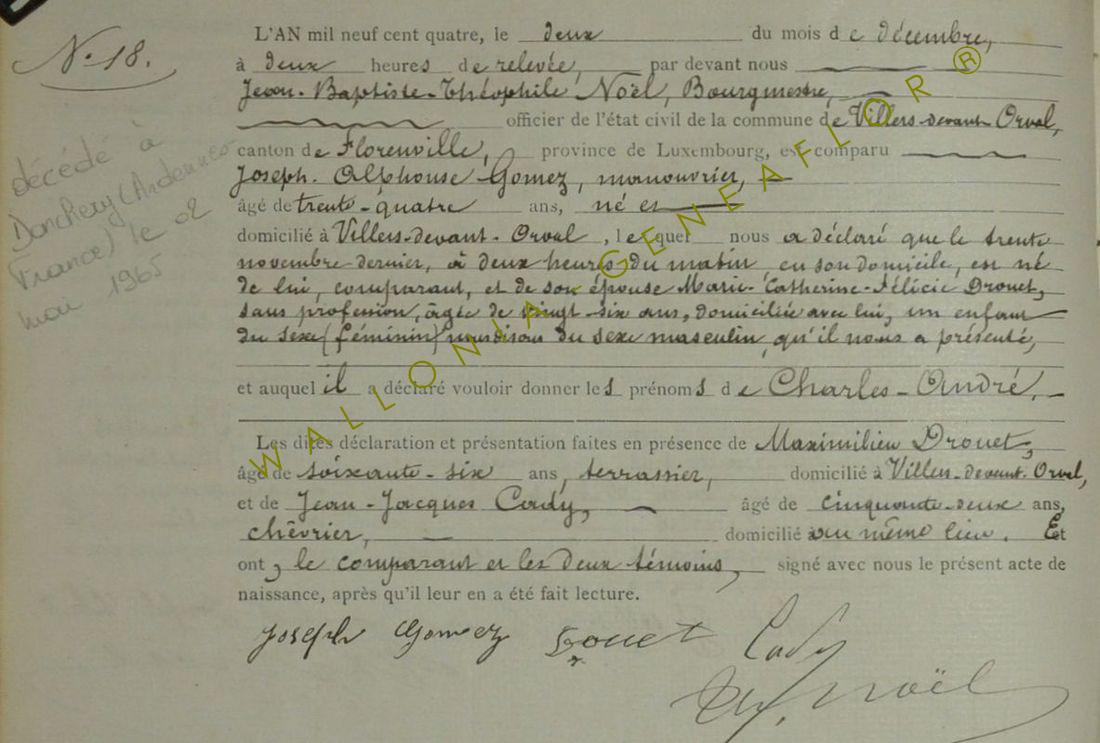 N.º 18.
décédé à
Donchery (Ardennes
France) le 02
mai 1965
L'AN mil neuf cent quatre, le deux du mois de décembre,
à deux heures de relevée, par devant nous
Jean-Baptiste-Théophile Noël, Bourgmestre,
officier de l'état civil de la commune de Villers-devant-Orval,
canton de Florenville, province de Luxembourg, est comparu
Joseph-Alphonse Gomez, manouvrier,
âgé de trente-quatre ans, né
domicilié à Villers-devant-Orval, lequel nous a déclaré que le trente
novembre dernier, à deux heures du matin, en son domicile, est né
de lui, comparant, et de son épouse Marie-Catherine-Félicie Drouet,
sans profession, âgée de vingt-six ans, domiciliée avec lui, un enfant
du sexe (féminin) nous disons du sexe masculin, qu'il nous a présenté,
et auquel il a déclaré vouloir donner les prénoms de Charles-André.
Les dites déclaration et présentation faites en présence de Maximilien Drouet,
âgé de soixante-six ans, terrassier, domicilié à Villers-devant-Orval,
et de Jean-Jacques Cady, âgé de cinquante-deux ans,
chêvrier, domicilié au même lieu. Et
ont, le comparant et les deux témoins, signé avec nous le présent acte de
naissance, après qu'il leur en a été fait lecture.
Joseph Gomez Drouet Cady
Th. Noël
WALLONIA-GENEAFLOR®